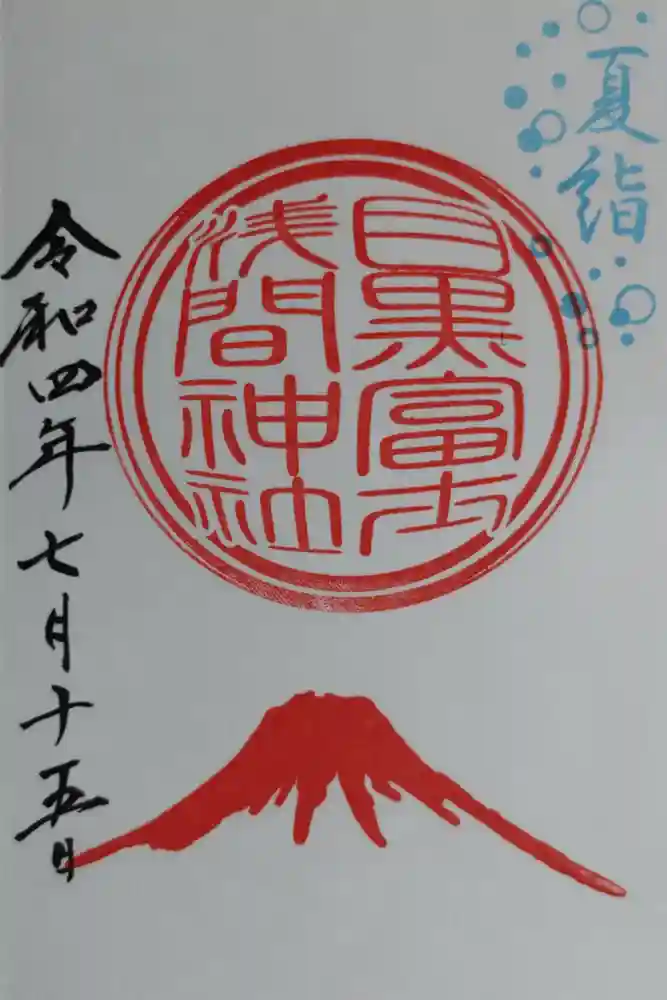 夏詣
目黒富士
浅間神社
令和四年七月十五日